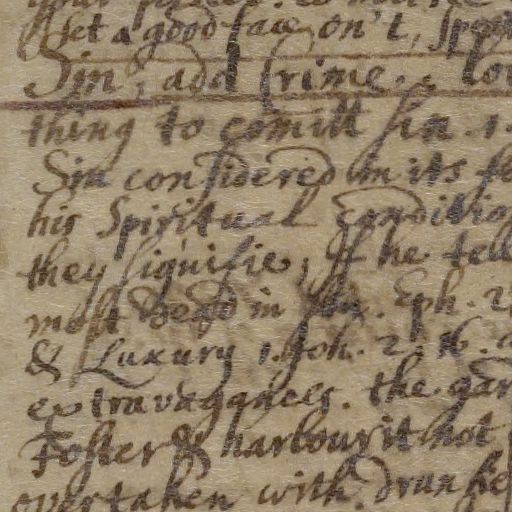 & set a good face on't, spea
Sin, add Crime. lo
thing to comitt sin. 1.
Sin considered in its
his Spiritual condition
they signifie, If he tell
most dead in sin. Eph. 2
& Luxury 1. Joh. 2. 16.
extravagances. the gar
Foster & harbour it not
overtaken with drunke